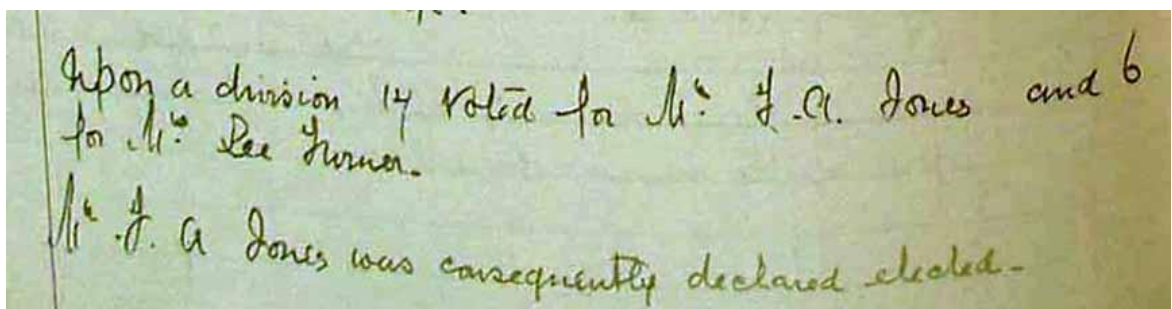 Upon a division 14 voted for Mr. F. A. Jones and 6
for Mr. Lee Turner.
Mr. F. A Jones was consequently declared elected-